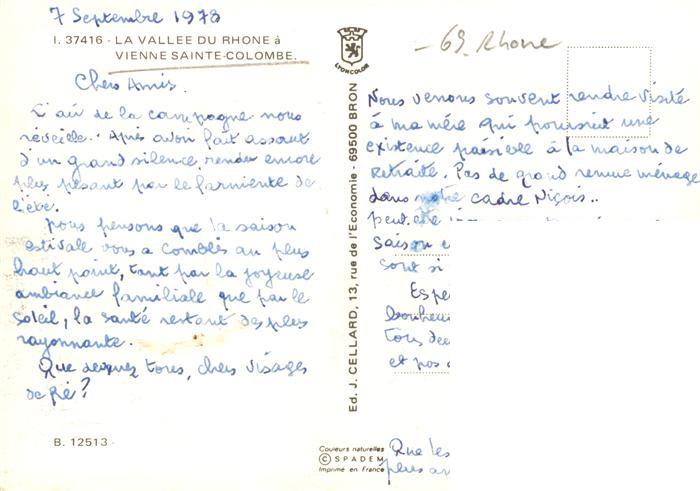 7 Septembre 1978
I. 37416 - LA VALLEE DU RHONE à
VIENNE SAINTE-COLOMBE.
Chers Amis.
L'air de la campagne nous
réveille. Après avoir fait assaut
d'un grand silence rendu encore
plus pesant par le farniente de
l'été.
Nous pensons que la saison
estivale vous a comblés au plus
haut point, tant par la joyeuse
ambiance familiale que par le
soleil, la santé restant des plus
rayonnante.
Que devenez tous, chers visages
de Ré?
B. 12513 -
LYONCOLOR
Ed. J. CELLARD, 13, rue de l'Economie - 69500 BRON
Couleurs naturelles
© SPADEM
Imprimé en France
- 69. Rhone
Nous venons souvent rendre visite
à ma mère qui poursuit une
existence paisible à la maison de
Retraite. Pas de grand remue ménage
dans notre cadre Niçois..
peut être
Saison
sont si
Espe
bonheu
tous
et pas
Que les
plus